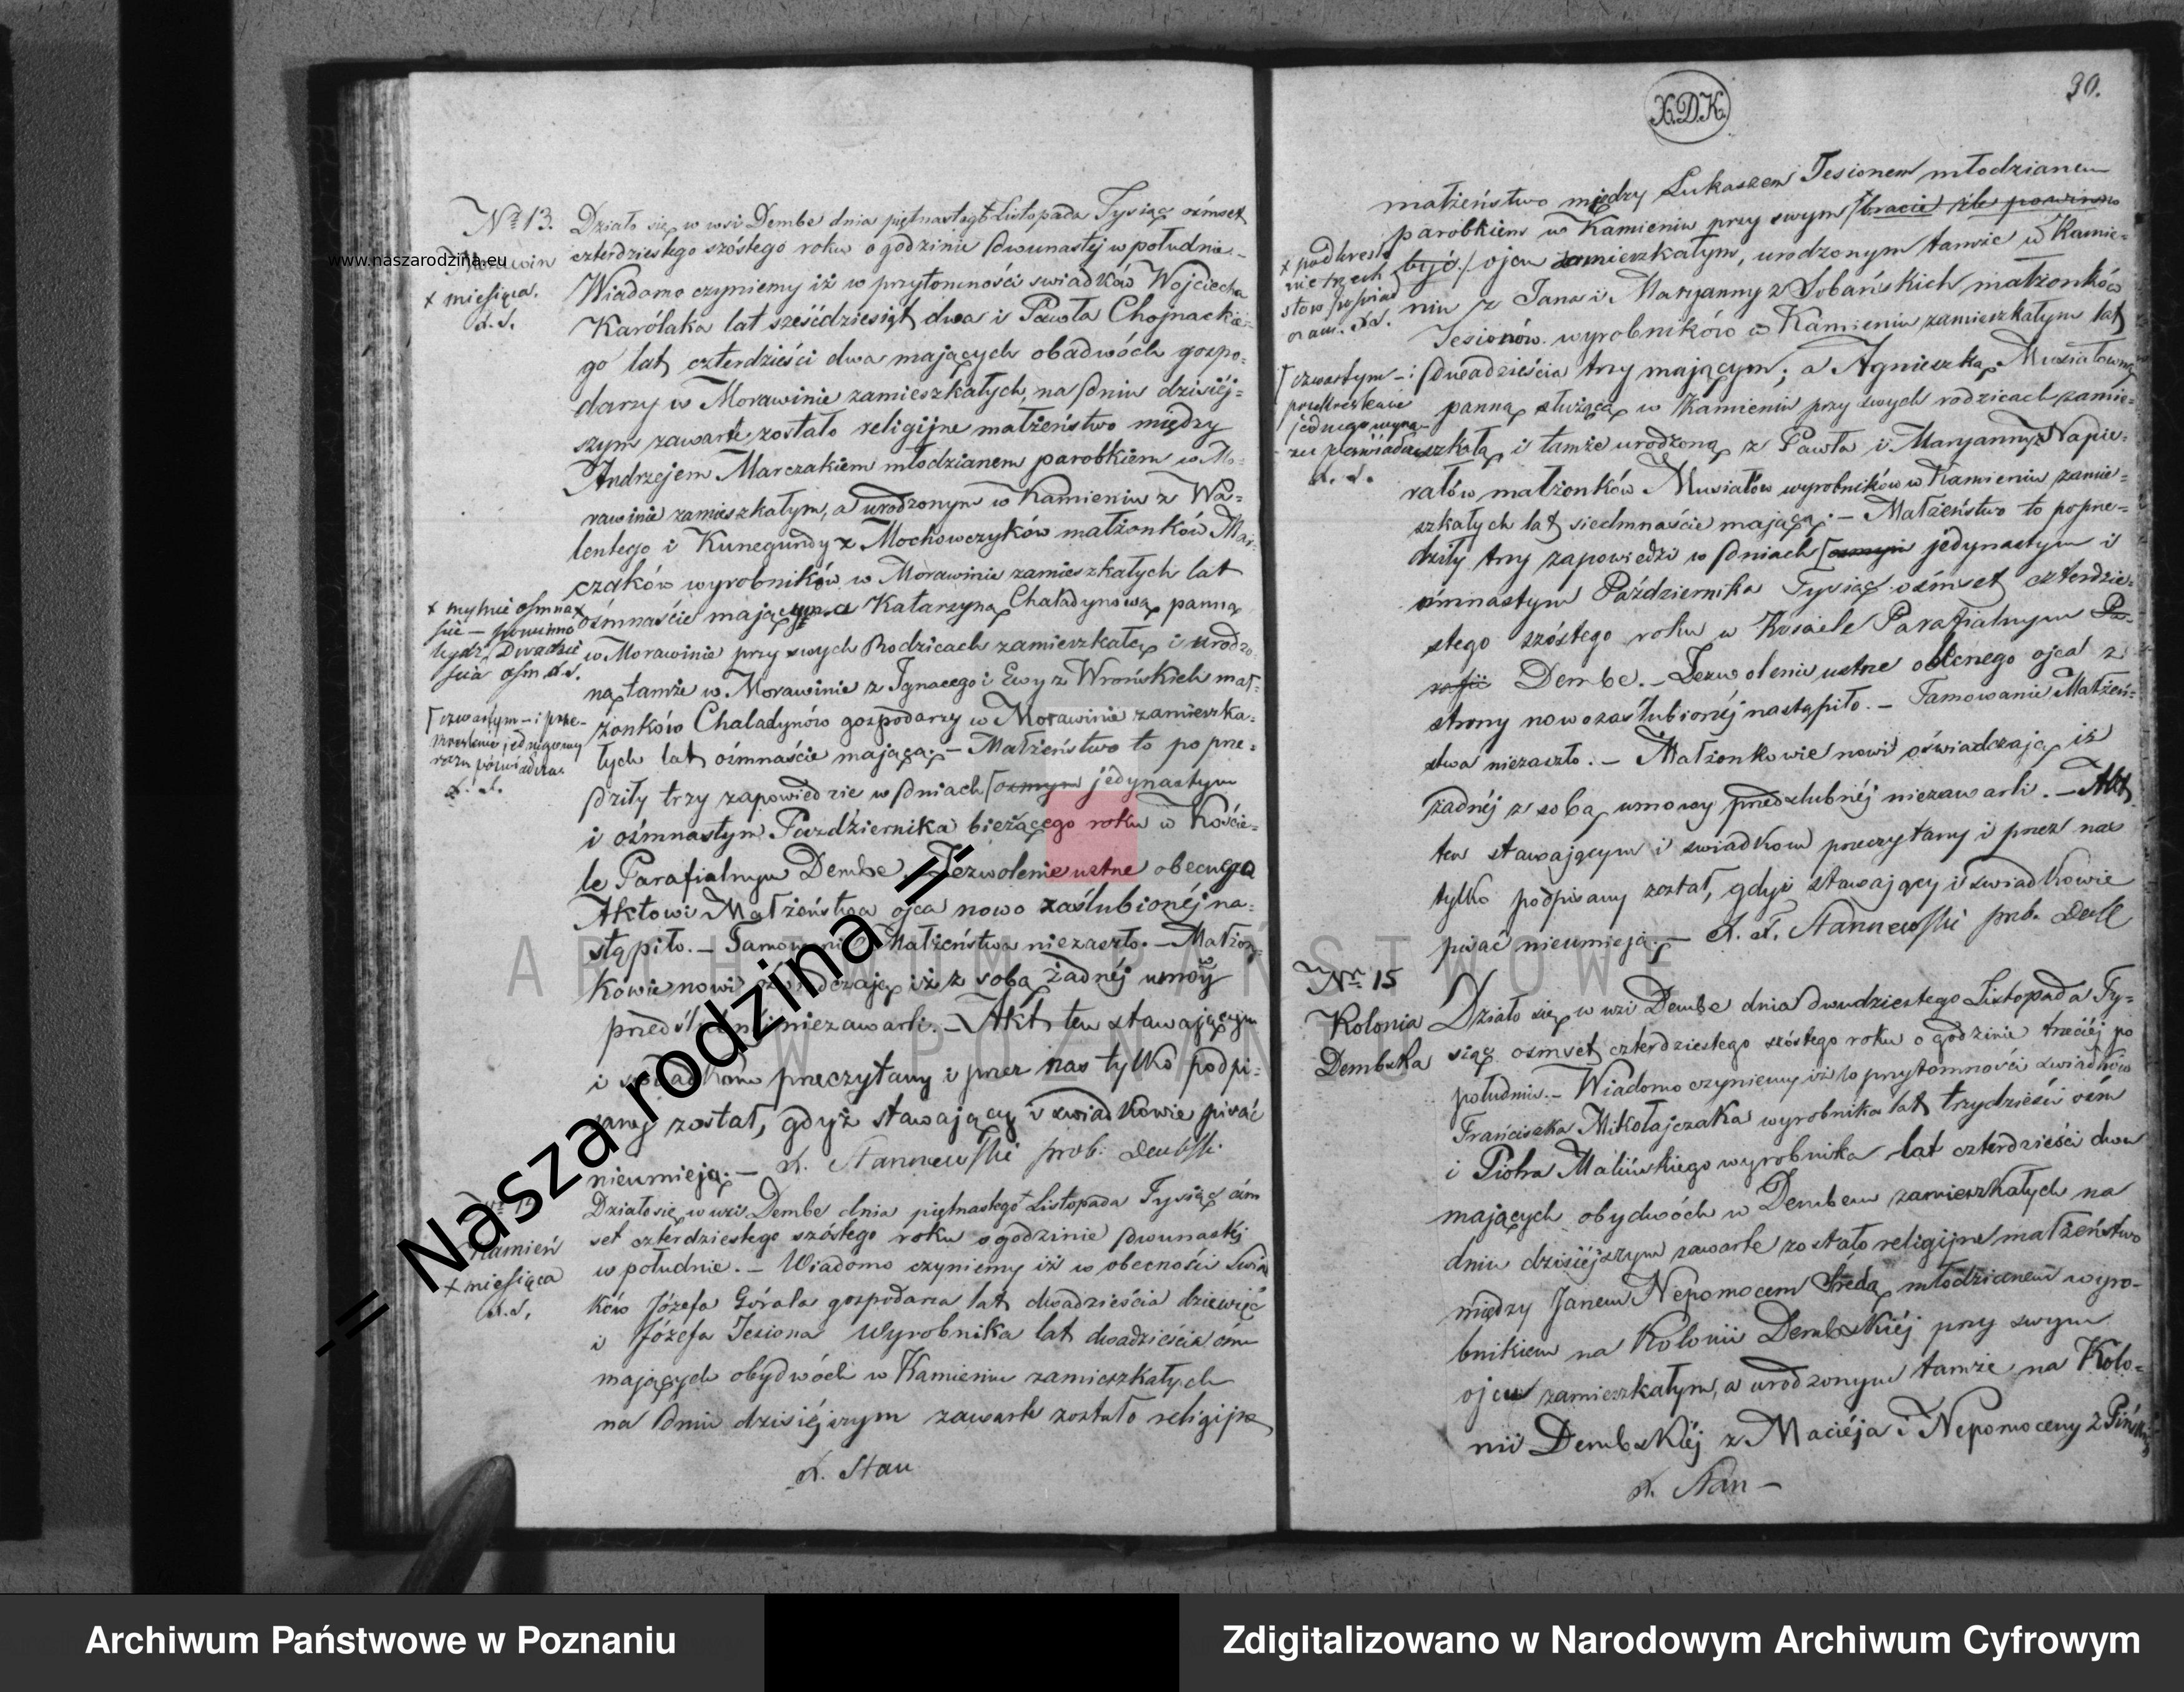 Nr 13.
Morawin
x miesiąca.
A. S.
Działo się w wsi Dembe dnia piętnastego Listopada Tysiąc ośmset
czterdziestego szóstego roku o godzinie dwunastéj w południe.–
Wiadomo czyniemy iż w przytomności swiadków Wojciecha
Karólaka lat sześćdziesiąt dwa i Pawła Chojnackie-
go lat czterdzieści dwa mających obadwóch gospo-
darzy w Morawinie zamieszkałych, na dniu dzisiéj-
szym zawarte zostało religijne małżeństwo między
Andrzejem Marczakiem młodzianem parobkiem w Mo-
rawinie zamieszkałym, a urodzonym w Kamieniu z Wa-
lentego i Kunegundy z Mochowczyków małżonków Mar-
czaków wyrobników w Morawinie zamieszkałych lat
ośmnaście mającym a Katarzyną Chaładynową panną
w Morawinie przy swych Rodzicach zamieszkałą i urodzo-
ną tamże w Morawinie z Ignacego i Ewy z Wrońskich mał-
żonków Chaladynów gospodarzy w Morawinie zamieszka-
łych lat ośmnaście mającą; – Małżeństwo to poprze-
dziły trzy zapowiedzie w dniach osmym jedynastym
i ośmnastym Października bieżącego roku w Kościé-
le Parafialnym Dembe. Zezwolenie ustne obecnego
Aktowi Małżeństwa ojca nowo zaślubionéj na-
stąpiło. – Tamowanie Małżeństwa niezaszło. – Małżon-
kowie nowi oświadczają iż z sobą żadnéj umowy
przedślubnéj niezawarli. – Akt ten stawającym
i swiadkom przeczytany i przez nas tylko podpi-
sany został, gdyż stawający i swiadkowie pisać
nieumieją. – A. Stannewski prob. Dembski
x mylnie osmna-
ście – powinno
bydź Dwadzie
scia osm A.S.
czwartym – i prze-
kreslenie jednego wy
razu poświadcza
A. S.
Kamień
x miesiąca
A. S.
Działo się w wsi Dembe dnia piętnastego Listopada Tysiąc ośm
set czterdziestego szóstego roku o godzinie dwunastéj
w południe. – Wiadomo czyniemy iż w obecności Swia
ków Józefa Górala gospodarza lat dwadzieścia dziewięć
i Józefa Jesiona Wyrobnika lat dwadzieścia ośm
mających obydwóch w Kamieniu zamieszkałych
na dniu dzisiéjszym zawarte zostało religijne
A. Stan
X.D.K.
30.
małżeństwo między Łukaszem Jesionem młodzianem
parobkiem w Kamieniu przy swym bracie źle powinno
być ojcu zamieszkałym, urodzonym tamże w Kamie-
niu z Jana i Maryanny z Sobańskich małżonków
Jesionów wyrobników w Kamieniu zamieszkałym lat
dwadzieścia trzy mającym; a Agnieszką Musiałowną
panną służącą w Kamieniu przy swych rodzicach zamie-
szkałą i tamże urodzoną z Pawła i Maryanny z Napie-
rałów małżonków Musiałów wyrobników w Kamieniu zamie-
szkałych lat siedmnaście mającą. – Małżeństwo to poprze-
dziły trzy zapowiedzi w dniach osmym jedynastym i
ośmnastym Października Tysiąc ośmset czterdzie-
stego szóstego roku w Kosciele Parafialnym Pa-
rafii Dembe. – Zezwolenie ustne obecnego ojca z
strony nowozaślubionéj nastąpiło. – Tamowanie Małżeń-
stwa niezaszło. – Małżonkowie nowi oświadczają iż
żadnéj z sobą umowy przedslubnéj niezawarli. – Akt
ten stawającym i swiadkom przeczytany i przez nas
tylko podpisany został, gdyż stawający i swiadkowie
pisać nieumieją. – A. S. Stannewski prob. Demb
x podkresle
nie trzech
słow poświad
czam. A.S.
czwartym – i
przekreslenie
jednego wyra-
zu poświadcza
A. S.
Nr 15
Kolonia
Dembska
Działo się w wsi Dembe dnia dwudziestego Listopada Ty-
siąc osmset czterdziestego szóstego roku o godzinie trzeciéj po
południu. – Wiadomo czyniemy iż w przytomności swiadków
Franciszka Mikołajczaka wyrobnika lat trzydzieści ośm
i Piotra Malińskiego wyrobnika lat czterdzieści dwa
mających obydwóch w Dembem zamieszkałych na
dniu dzisiéjszym zawarte zostało religijne małżeństwo
między Janem Nepomocem Średą młodzianem wyro-
bnikiem na Kolonii Dembskiéj przy swym
ojcu zamieszkałym, a urodzonym tamże na Kolo-
nii Dembskiéj z Maciéja i Nepomoceny z
A. Stan –
www.naszarodzina.eu
-= Nasza rodzina =-
ARCHIWUM PAŃSTWOWE
W POZNANIU
Archiwum Państwowe w Poznaniu
Zdigitalizowano w Narodowym Archiwum Cyfrowym